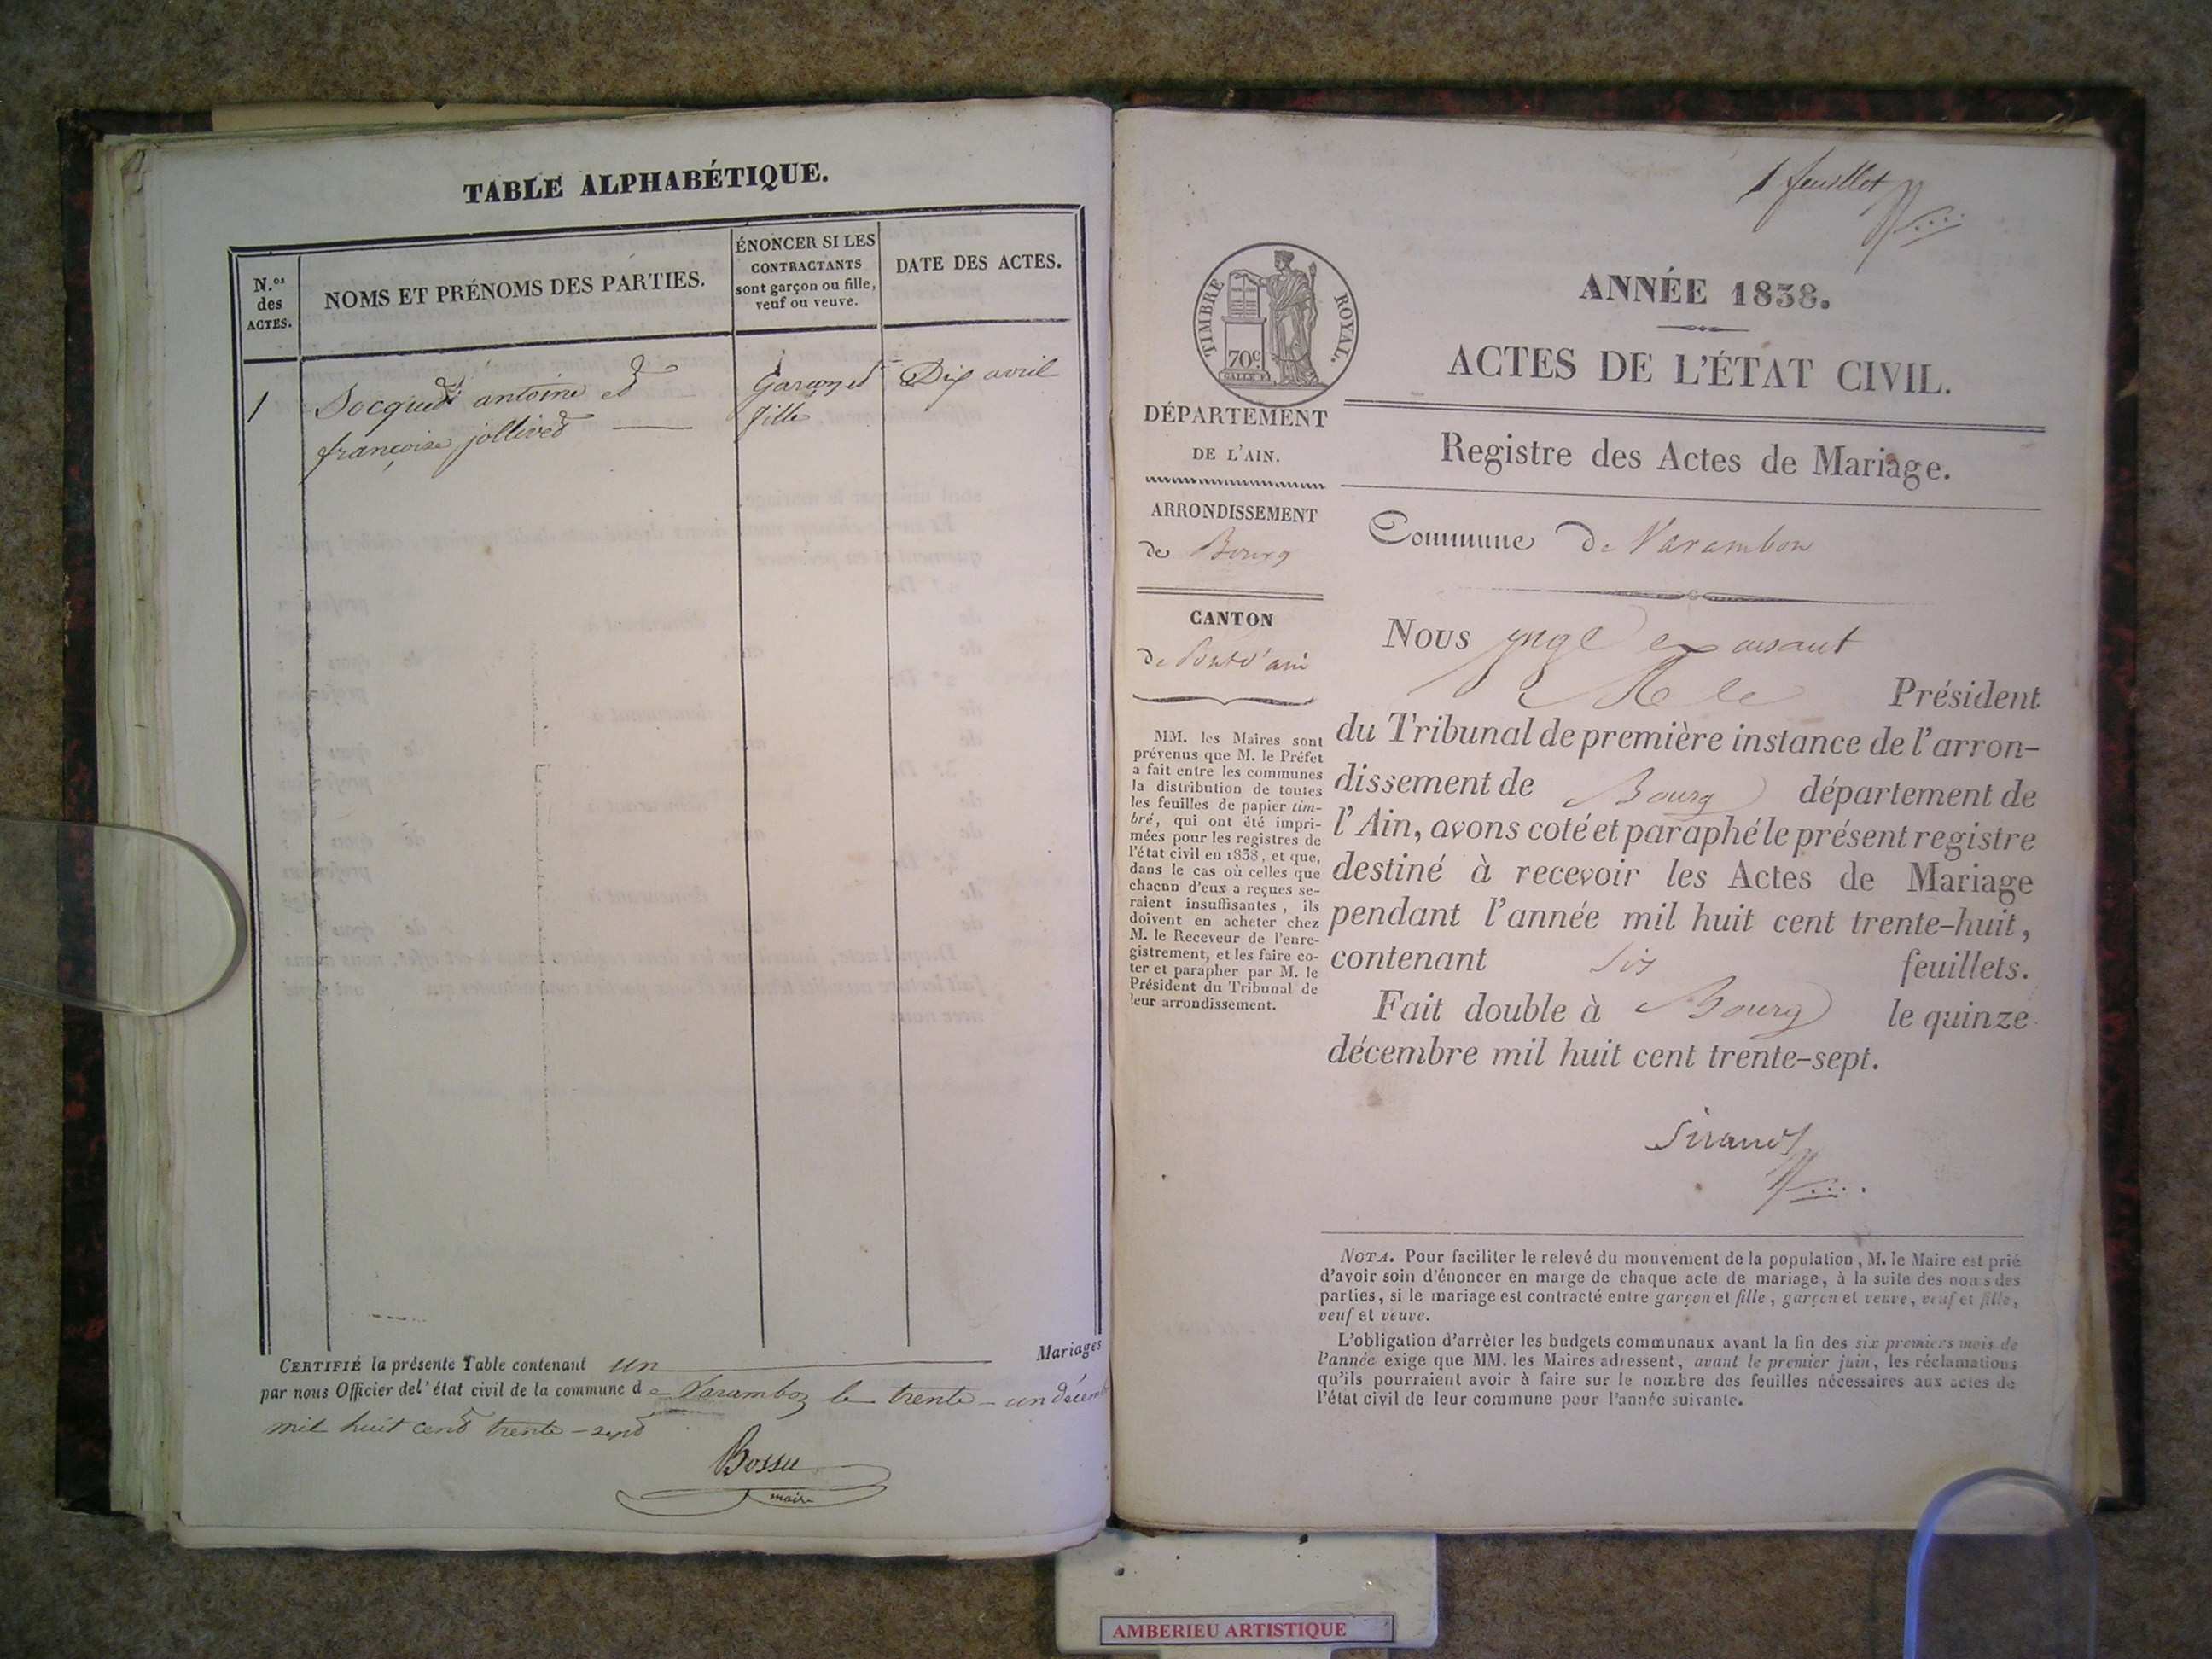 TABLE ALPHABÉTIQUE.
N.os
des
ACTES.
NOMS ET PRÉNOMS DES PARTIES.
ÉNONCER SI LES
CONTRACTANTS
sont garçon ou fille,
veuf ou veuve.
DATE DES ACTES.
1
Socquet antoine et
françoise jollivet
garçon et
fille
Dix avril
CERTIFIÉ la présente Table contenant un Mariages
par nous Officier de l'état civil de la commune de Varambon le trente-un décembre
mil huit cent trente-sept
Bossu
maire
1 feuillet
TIMBRE ROYAL.
70c
ANNÉE 1838.
ACTES DE L'ÉTAT CIVIL.
DÉPARTEMENT
DE L'AIN.
ARRONDISSEMENT
de Bourg
CANTON
de Pont d'ain
MM. les Maires sont
prévenus que M. le Préfet
a fait entre les communes
la distribution de toutes
les feuilles de papier tim-
bré, qui ont été impri-
mées pour les registres de
l'état civil en 1838, et que,
dans le cas où celles que
chacun d'eux a reçues se-
raient insuffisantes, ils
doivent en acheter chez
M. le Receveur de l'enre-
gistrement, et les faire co-
ter et parapher par M. le
Président du Tribunal de
leur arrondissement.
Registre des Actes de Mariage.
Commune de Varambon
Nous juge
le Président
du Tribunal de première instance de l'arron-
dissement de Bourg département de
l'Ain, avons coté et paraphé le présent registre
destiné à recevoir les Actes de Mariage
pendant l'année mil huit cent trente-huit,
contenant six feuillets.
Fait double à Bourg le quinze
décembre mil huit cent trente-sept.
Sirand
NOTA. Pour faciliter le relevé du mouvement de la population, M. le Maire est prié
d'avoir soin d'énoncer en marge de chaque acte de mariage, à la suite des noms des
parties, si le mariage est contracté entre garçon et fille, garçon et veuve, veuf et fille,
veuf et veuve.
L'obligation d'arrêter les budgets communaux avant la fin des six premiers mois de
l'année exige que MM. les Maires adressent, avant le premier juin, les réclamations
qu'ils pourraient avoir à faire sur le nombre des feuilles nécessaires aux actes de
l'état civil de leur commune pour l'année suivante.
AMBERIEU ARTISTIQUE